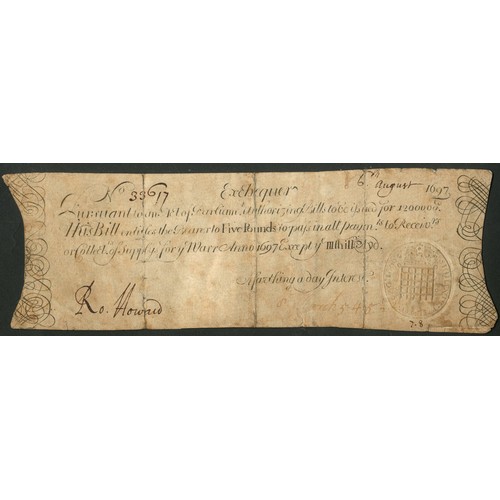 No 33617 Exchequer 6 August 1697
Pursuant to an Act of Parliamt Authorizing Bills to be issued for 1200000
This Bill entitles the Bearer to Five Pounds to pass in all paymts to Receivrs
or Collectrs of Supplys for ye Warr Anno 1697 Except ye
A farthing a day Interest
Ro. Howard
7.8